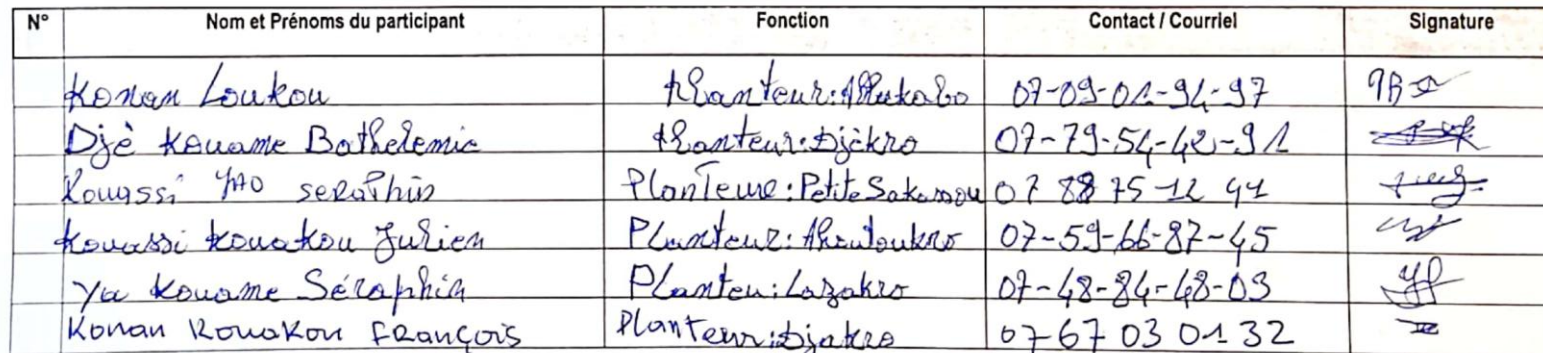 N° Nom et Prénoms du participant Fonction Contact / Courriel Signature
Konan Loukou Planteur: 07-09-01-94-97
Djè Kouame Bathelemie Planteur: Djèkro 07-79-54-42-91
Kouassi YAO seraphin Planteure: Petite Sakassou 07 88 75 12 41
Kouassi Kouakou Julien Planteur: Ahoutoukro 07-59-66-87-45
Ya Kouame Séraphin Planteu: Lazakro 07-48-84-48-03
Konan Kouakou François Planteur: Djakro 07-67 03 01 32